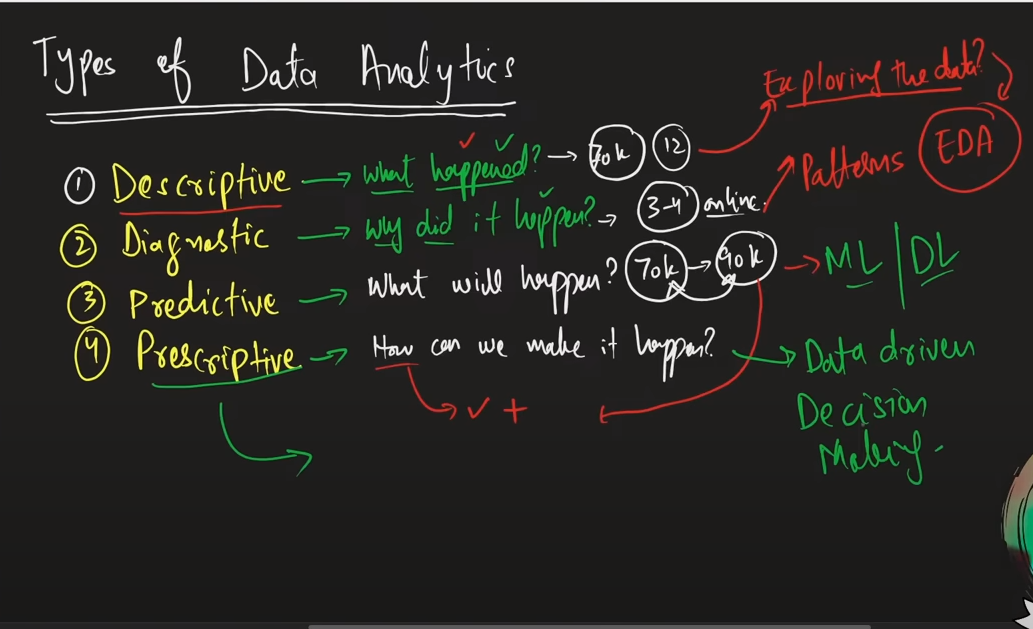 Types of Data Analytics
Exploring the data?
① Descriptive → What happened? → 70k 12
Patterns EDA
② Diagnostic → Why did it happen? → 3-4 online.
③ Predictive → What will happen? 70k → 90k → ML | DL
④ Prescriptive → How can we make it happen? → Data driven
Decision
Making
✓ +